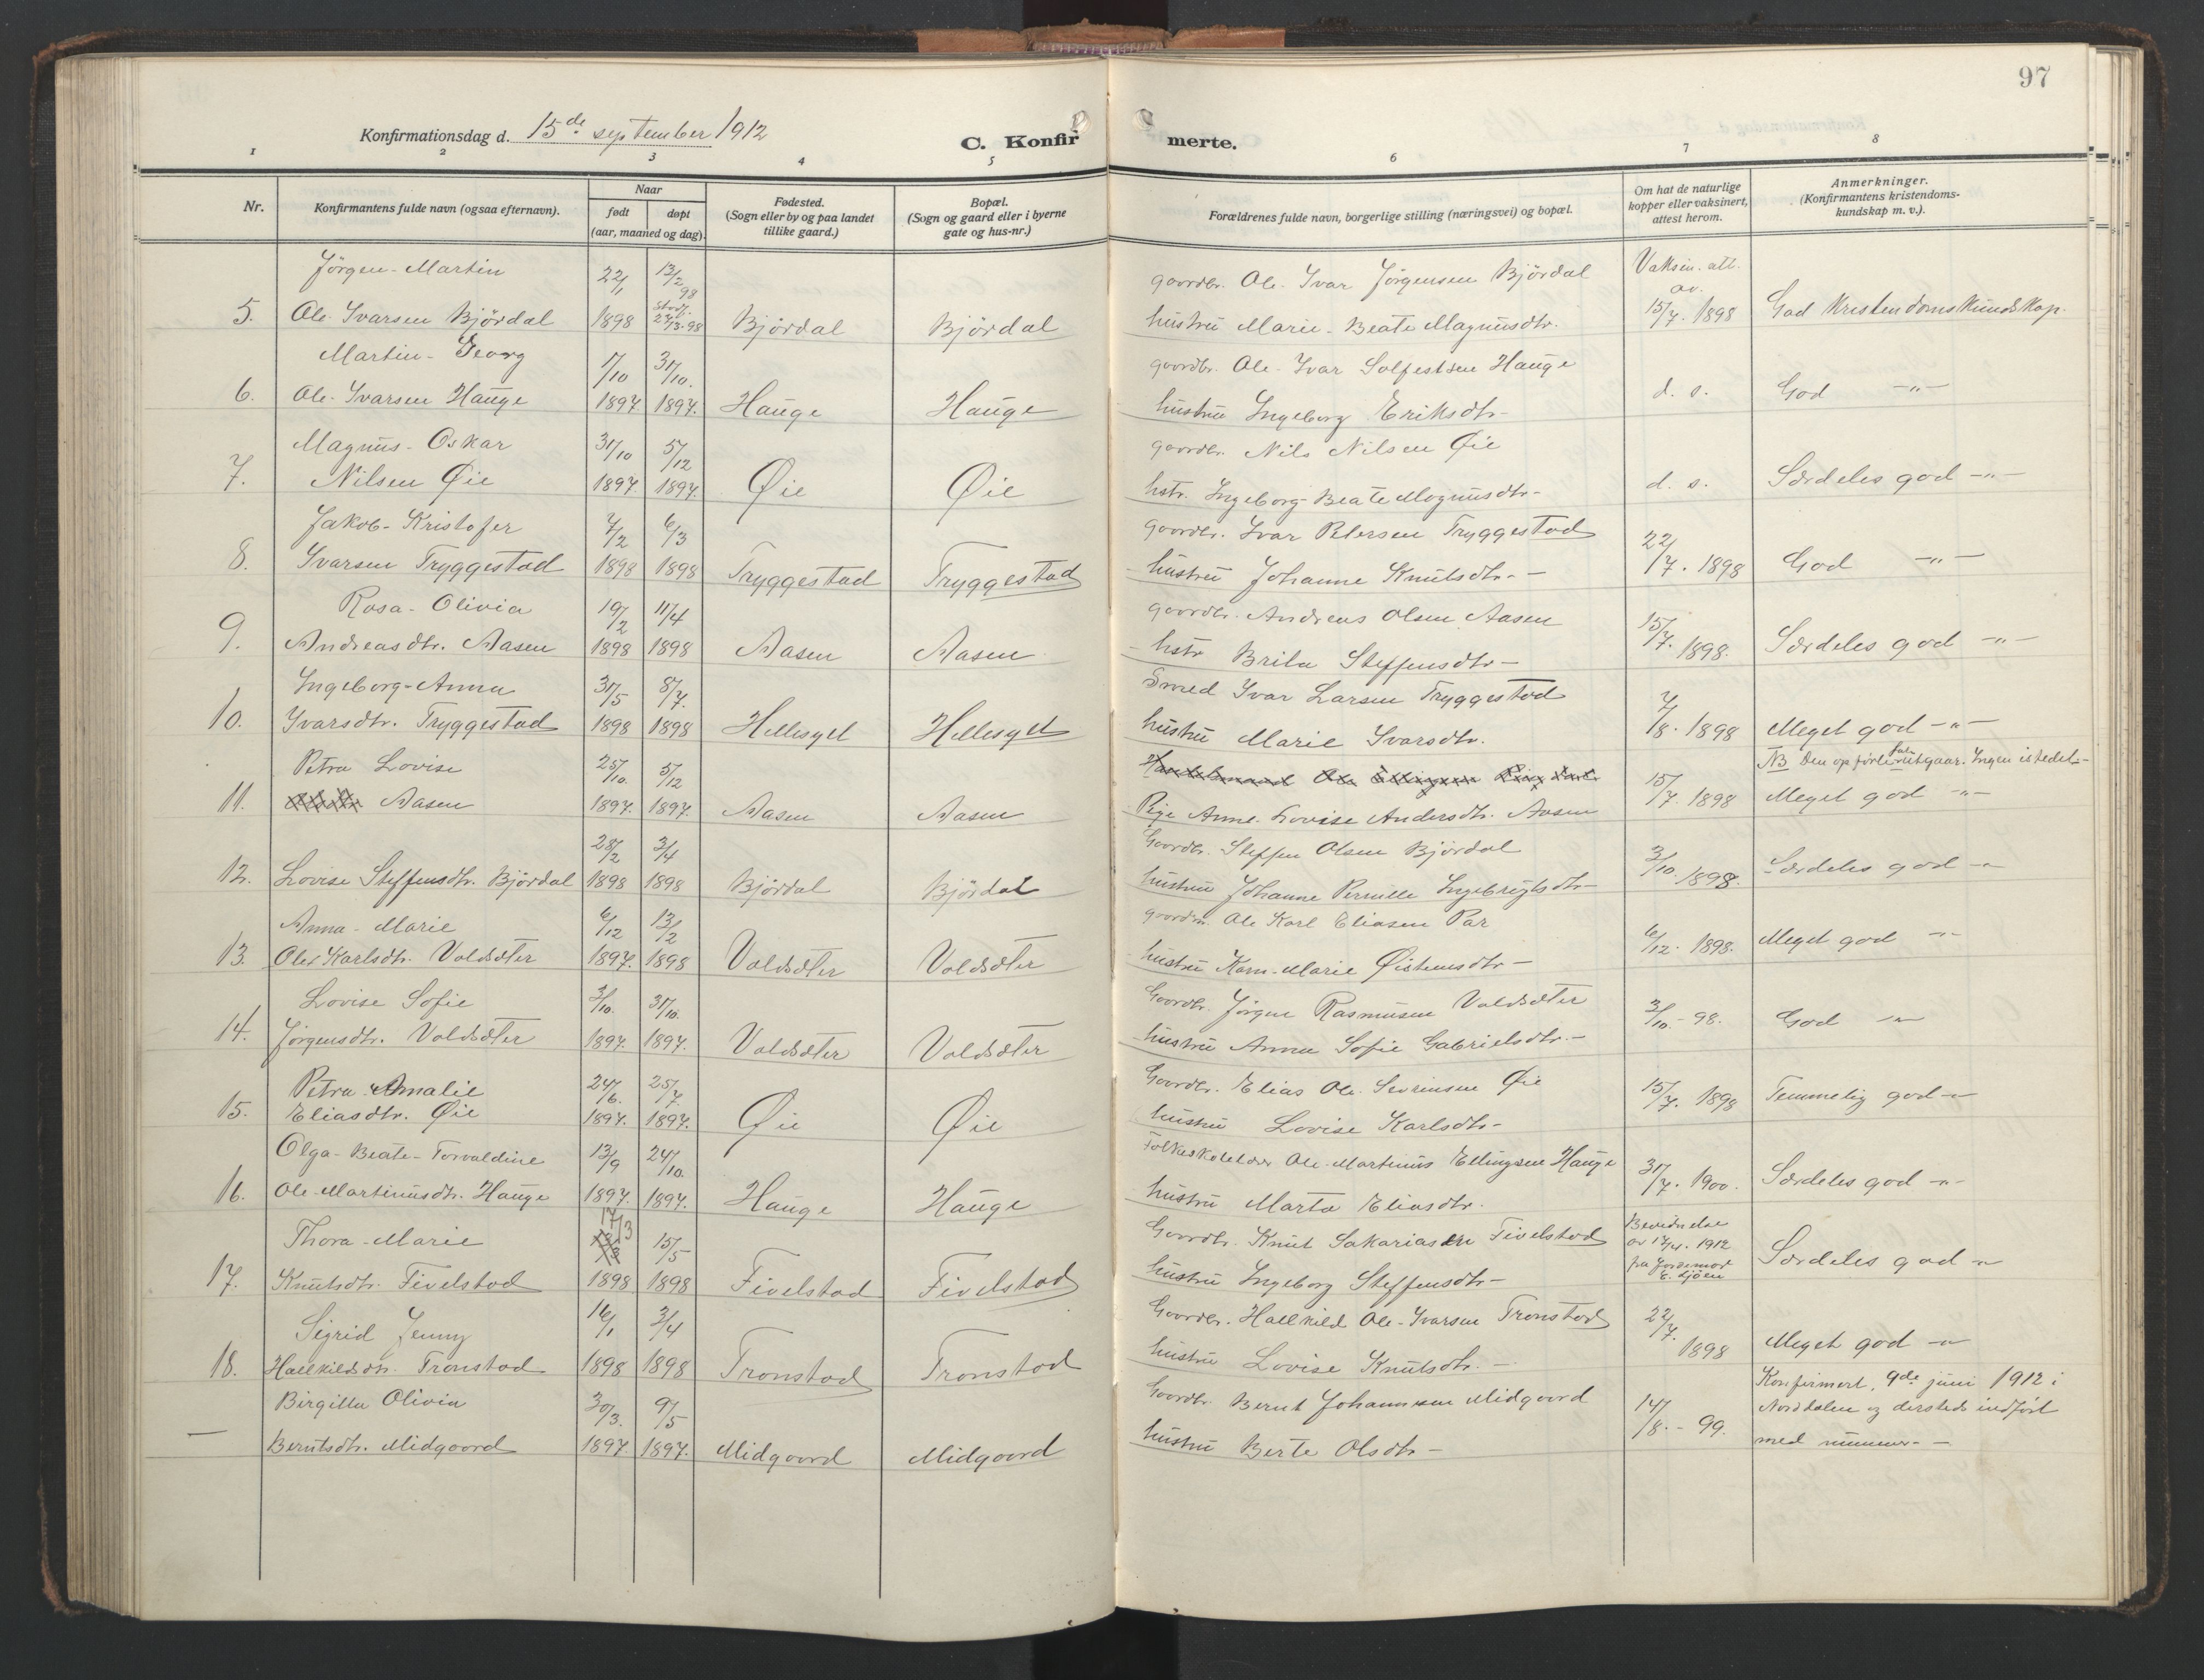 97
Konfirmationsdag d. 15de september 1912
C. Konfirmerte.
1 2 3 4 5 6 7 8
Nr.
Konfirmantens fulde navn (ogsaa efternavn).
Naar
født
døpt
(aar, maaned og dag).
Fødested.
(Sogn eller by og paa landet
tillike gaard.)
Bopæl.
(Sogn og gaard eller i byerne
gate og hus-nr.)
Forældrenes fulde navn, borgerlige stilling (næringsvei) og bopæl.
Om hat de naturlige
kopper eller vaksinert,
attest herom.
Anmerkninger.
(Konfirmantens kristendoms-
kundskap m. v.).
Jörgen-Martin 22/1 13/2 98 gaardbr. Ole-Ivar Jörgensen Björdal Vaksin. att. av.
5. Ole-Ivarsen Björdal 1898 27/3-98 Björdal Björdal hustru Marie-Beate Magnusdtr. 15/7. 1898 God Kristendomskundskap.
Martin-Georg 1/10 31/10. gaardbr. Ole-Ivar Solfestsen Hauge
6. Ole-Ivarsen Hauge 1897 1897. Hauge Hauge hustru Ingeborg Eriksdtr- d. s. God -"-
Magnus-Oskar 31/10 5/12 gaardbr. Nils Nilsen Øie
7. Nilsen Øie 1897. 1897. Øie Øie hstr. Ingeborg-Beate Magnusdtr- d. s. Særdeles god -"-
Jakob-Kristofer 7/2 6/3 gaardbr. Ivar Petersen Tryggestad
8. Ivarsen Tryggestad 1898 1898 Tryggestad Tryggestad hustru Johanne Knutsdtr.- 22/7. 1898 God -"-
Rosa-Olivia 19/2 11/4 gaardbr. Andreas Olsen Aasen
9. Andreasdtr. Aasen 1898 1898 Aasen Aasen hstr Brita Steffensdtr- 15/7. 1898. Særdeles god -"-
Ingeborg-Anna 31/5 8/7. Smed Ivar Larsen Tryggestad
10. Ivarsdtr. Tryggestad 1898 1898 Hellesylt Hellesylt hustru Marie Ivarsdtr. 7/8. 1898 Meget god -"-
Petra Lovise 25/10. 5/12 NB Den opförte far utgaar. Ingen istedet.-
11. Aasen 1897. 1897. Aasen Aasen Pige Anne-Lovise Andersdtr. Aasen 15/7. 1898 Meget god -"-
28/2 3/4 Gaardbr. Steffen Olsen Björdal
12. Lovise Steffensdtr. Björdal 1898 1898 Björdal Björdal hustru Johanne Pernille Ingebrigtsdtr- 3/10. 1898. Særdeles god -"-
Anna-Marie 6/12 13/2 gaardm. Ole Karl Eliasen Par
13. Ole-Karlsdtr. Voldsæter 1897. 1898 Voldsæter Voldsæter hustru Karn-Marie Øistensdtr- 6/12. 1898. Meget god -"-
Lovise Sofie 3/10. 31/10. Gaardbr. Jörgen Rasmusen Voldsæter
14. Jörgensdtr. Voldsæter 1897. 1897. Voldsæter Voldsæter hustru Anna Sofie Gabrielsdtr.- 3/10.-98. God -"-
Petra Amalie 24/6. 25/7. Gaardbr. Elias Ole-Severinsen Øie
15. Eliasdtr. Øie 1897. 1897. Øie Øie hustru Lovise Karlsdtr- 15/7. 1898 Temmelig god -"-
Olga-Beate-Torvaldine 13/9 24/10. Folkeskolelærer Ole-Martinus Ellingsen Hauge
16. Ole-Martinusdtr. Hauge 1897. 1897. Hauge Hauge hustru Marta Eliasdtr. 31/7. 1900. Særdeles god -"-
Thora-Marie 17/3 15/5 Gaardbr. Knut Sakariassen Fivelstad Bevidnelse av 17/4. 1912
17. Knutsdtr. Fivelstad 1898 1898 Fivelstad Fivelstad hustru Ingeborg Steffensdtr- fra Jordemor E. Sjöen Særdeles god -"-
Sigrid Jenny 16/1 3/4 Gaardbr. Hallkild Ole-Ivarsen Tronstad
18. Hallkildsdtr. Tronstad 1898 1898 Tronstad Tronstad hustru Lovise Knutsdtr.- 22/7. 1898 Meget god -"-
Birgitta Olivia 30/3. 9/5 Gaardbr. Bernt Johannesen Midgaard Konfirmert, 9de juni 1912 i
— Berntsdtr. Midgaard 1897. 1897. Midgaard Midgaard hustru Berte Olsdtr- 14/8.-99. Norddalen og dersteds indfört
med nummer-